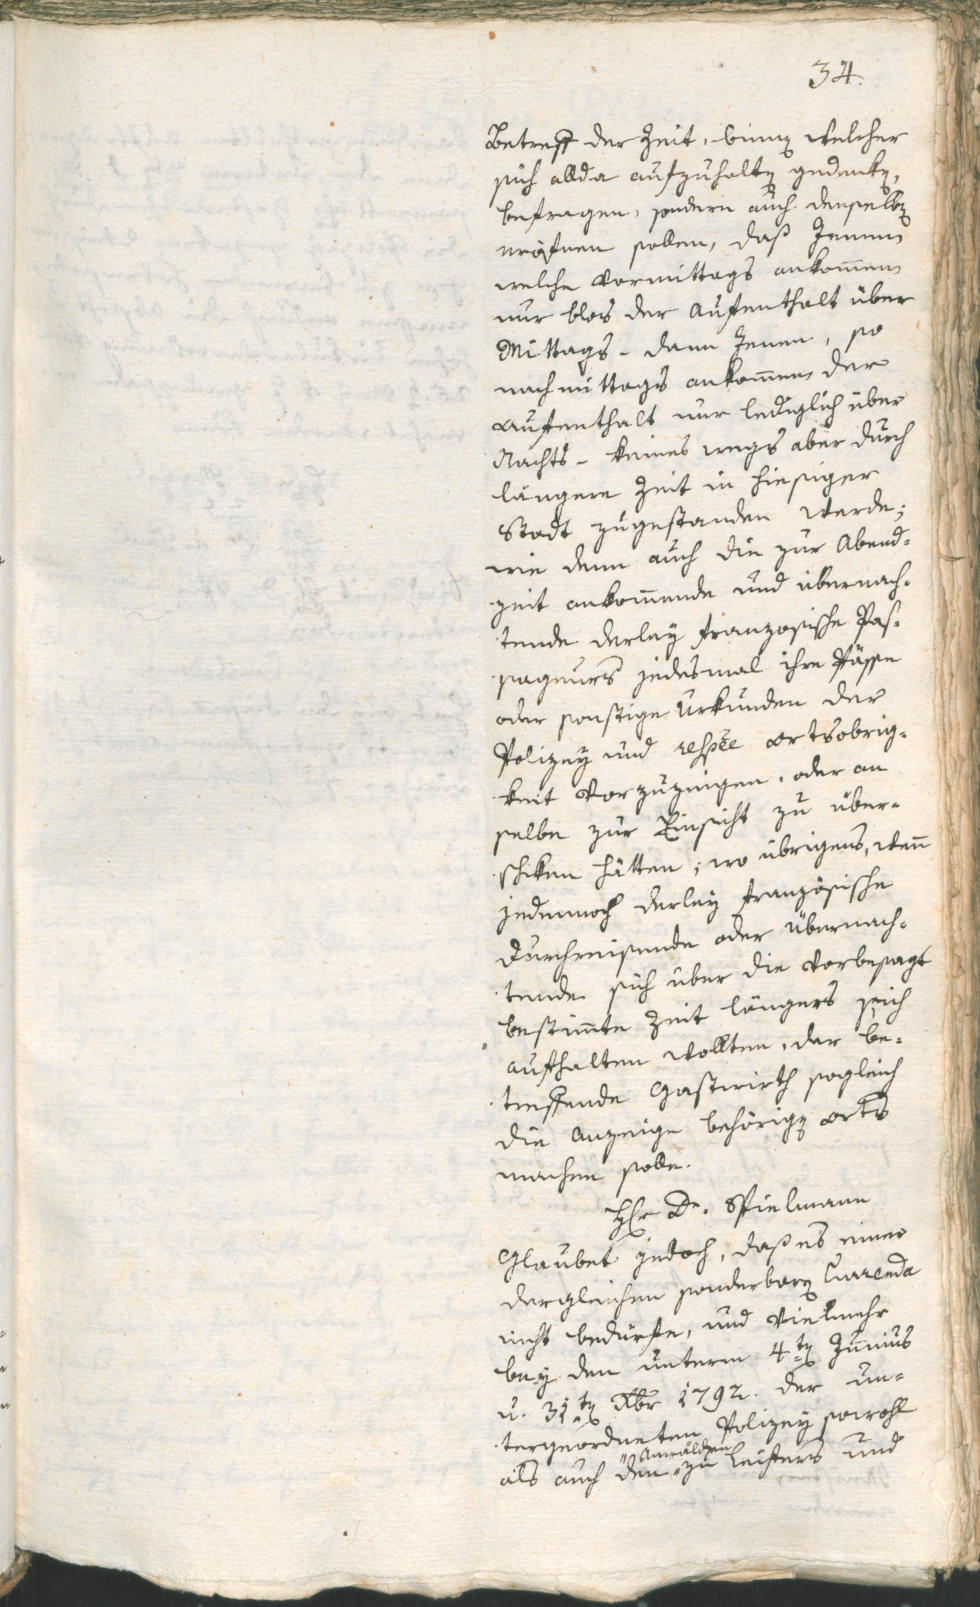 34.
Betreff der Zeit, binnen welcher
sich allda aufzuhalten gedenken,
befragen, sondern auch denselben
eröfnen sollen, daß Jenen,
welche Vormittags ankommen
nur blos der Aufenthalt über
Mittags - dann Jenen, so
nachmittags ankommen, der
Aufenthalt nur lediglich über
Nachts - keines wegs aber durch
längere Zeit in hiesiger
Stadt zugestanden werde;
wie denn auch die zur Abend-
zeit ankommende und übernach-
tende derley französische Pas-
sageurs jedesmal ihre Pässe
oder sonstige Urkunden der
Polizey und respee Ortsobrig-
keit vorzuzeigen, oder an
selbe zur Einsicht zu über-
schiken hätten; wo übrigens, wenn
jedennoch derley französische
Durchreisende oder übernach-
tende sich über die vorbesagt
bestimte Zeit längers sich
aufhalten wollten, der be-
treffende Gastwirth sogleich
die Anzeige behörigen Orts
machen solle.
Hr Dr. Spielmann
Glaubet jedoch, daß es einer
dergleichen sonderbaren Currenda
nicht bedürfte, und vielmehr
bey den unterm 4ten Junius
u. 31ten Xbr 1792. der un-
tergeordneten Polizey sowohl
als auch den Anwälden zu Leisters und